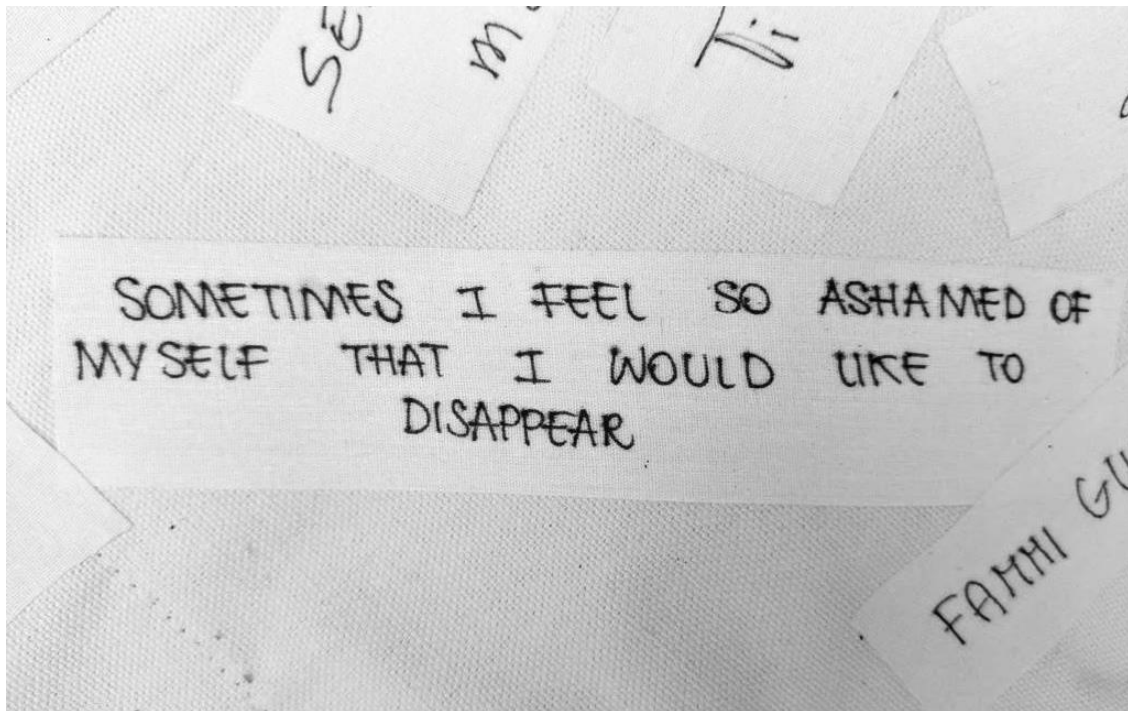 SE
M
Ti
SOMETIMES I FEEL SO ASHAMED OF
MYSELF THAT I WOULD LIKE TO
DISAPPEAR
FAMMI GU